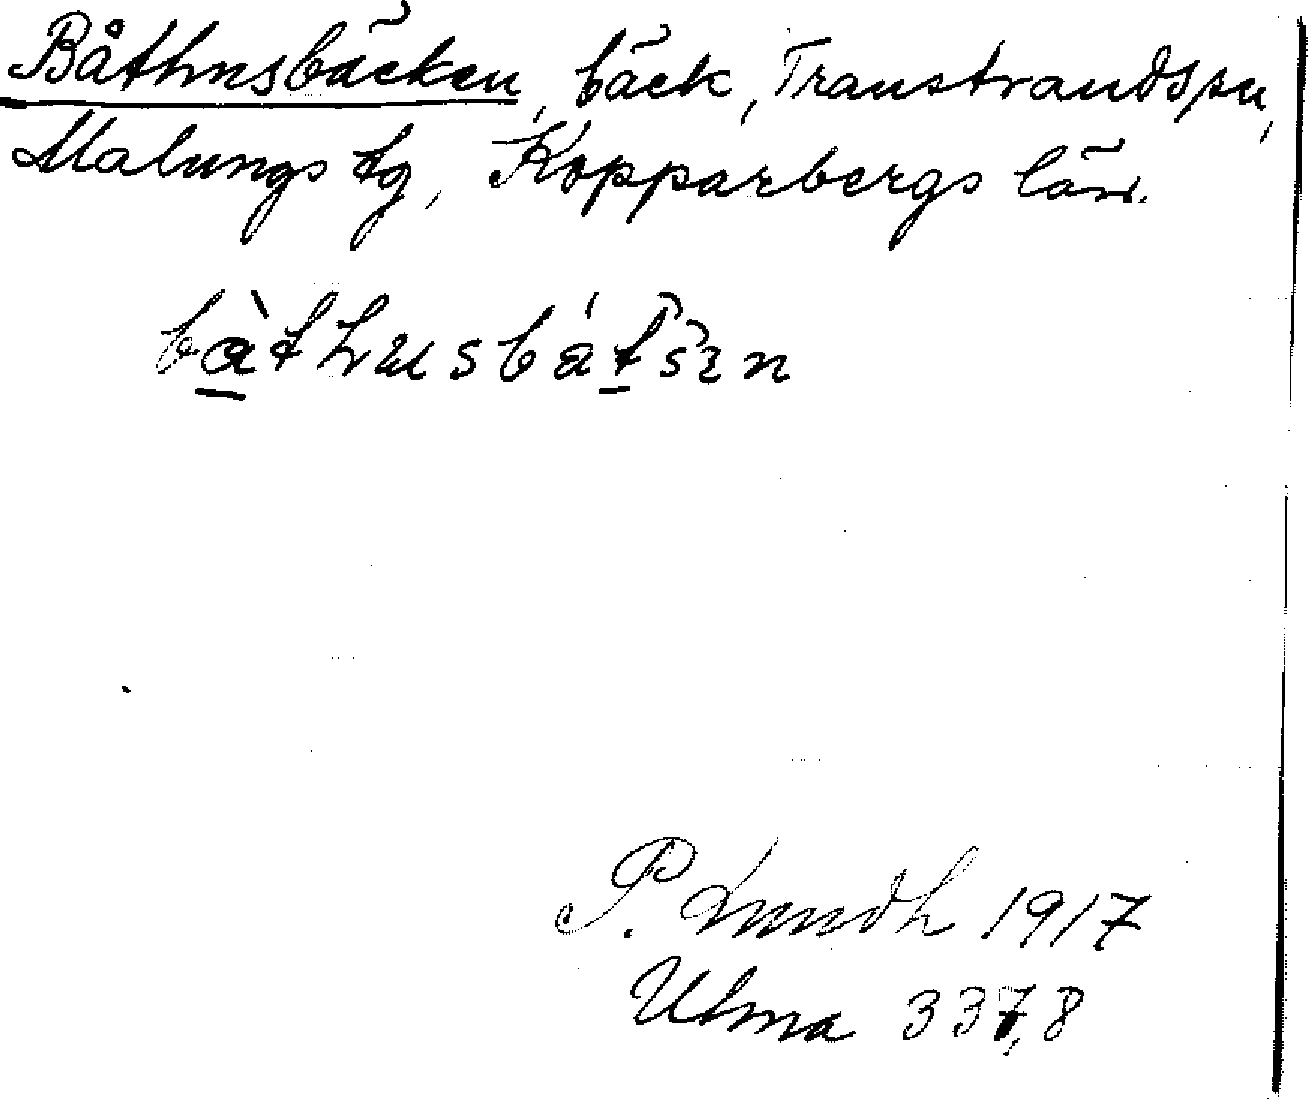 Båthusbäcken, bäck, Transtrands sn,
Malungs tg, Kopparbergs län.
bàthusbátšin
P. Lundh 1917
Ulma 337,8